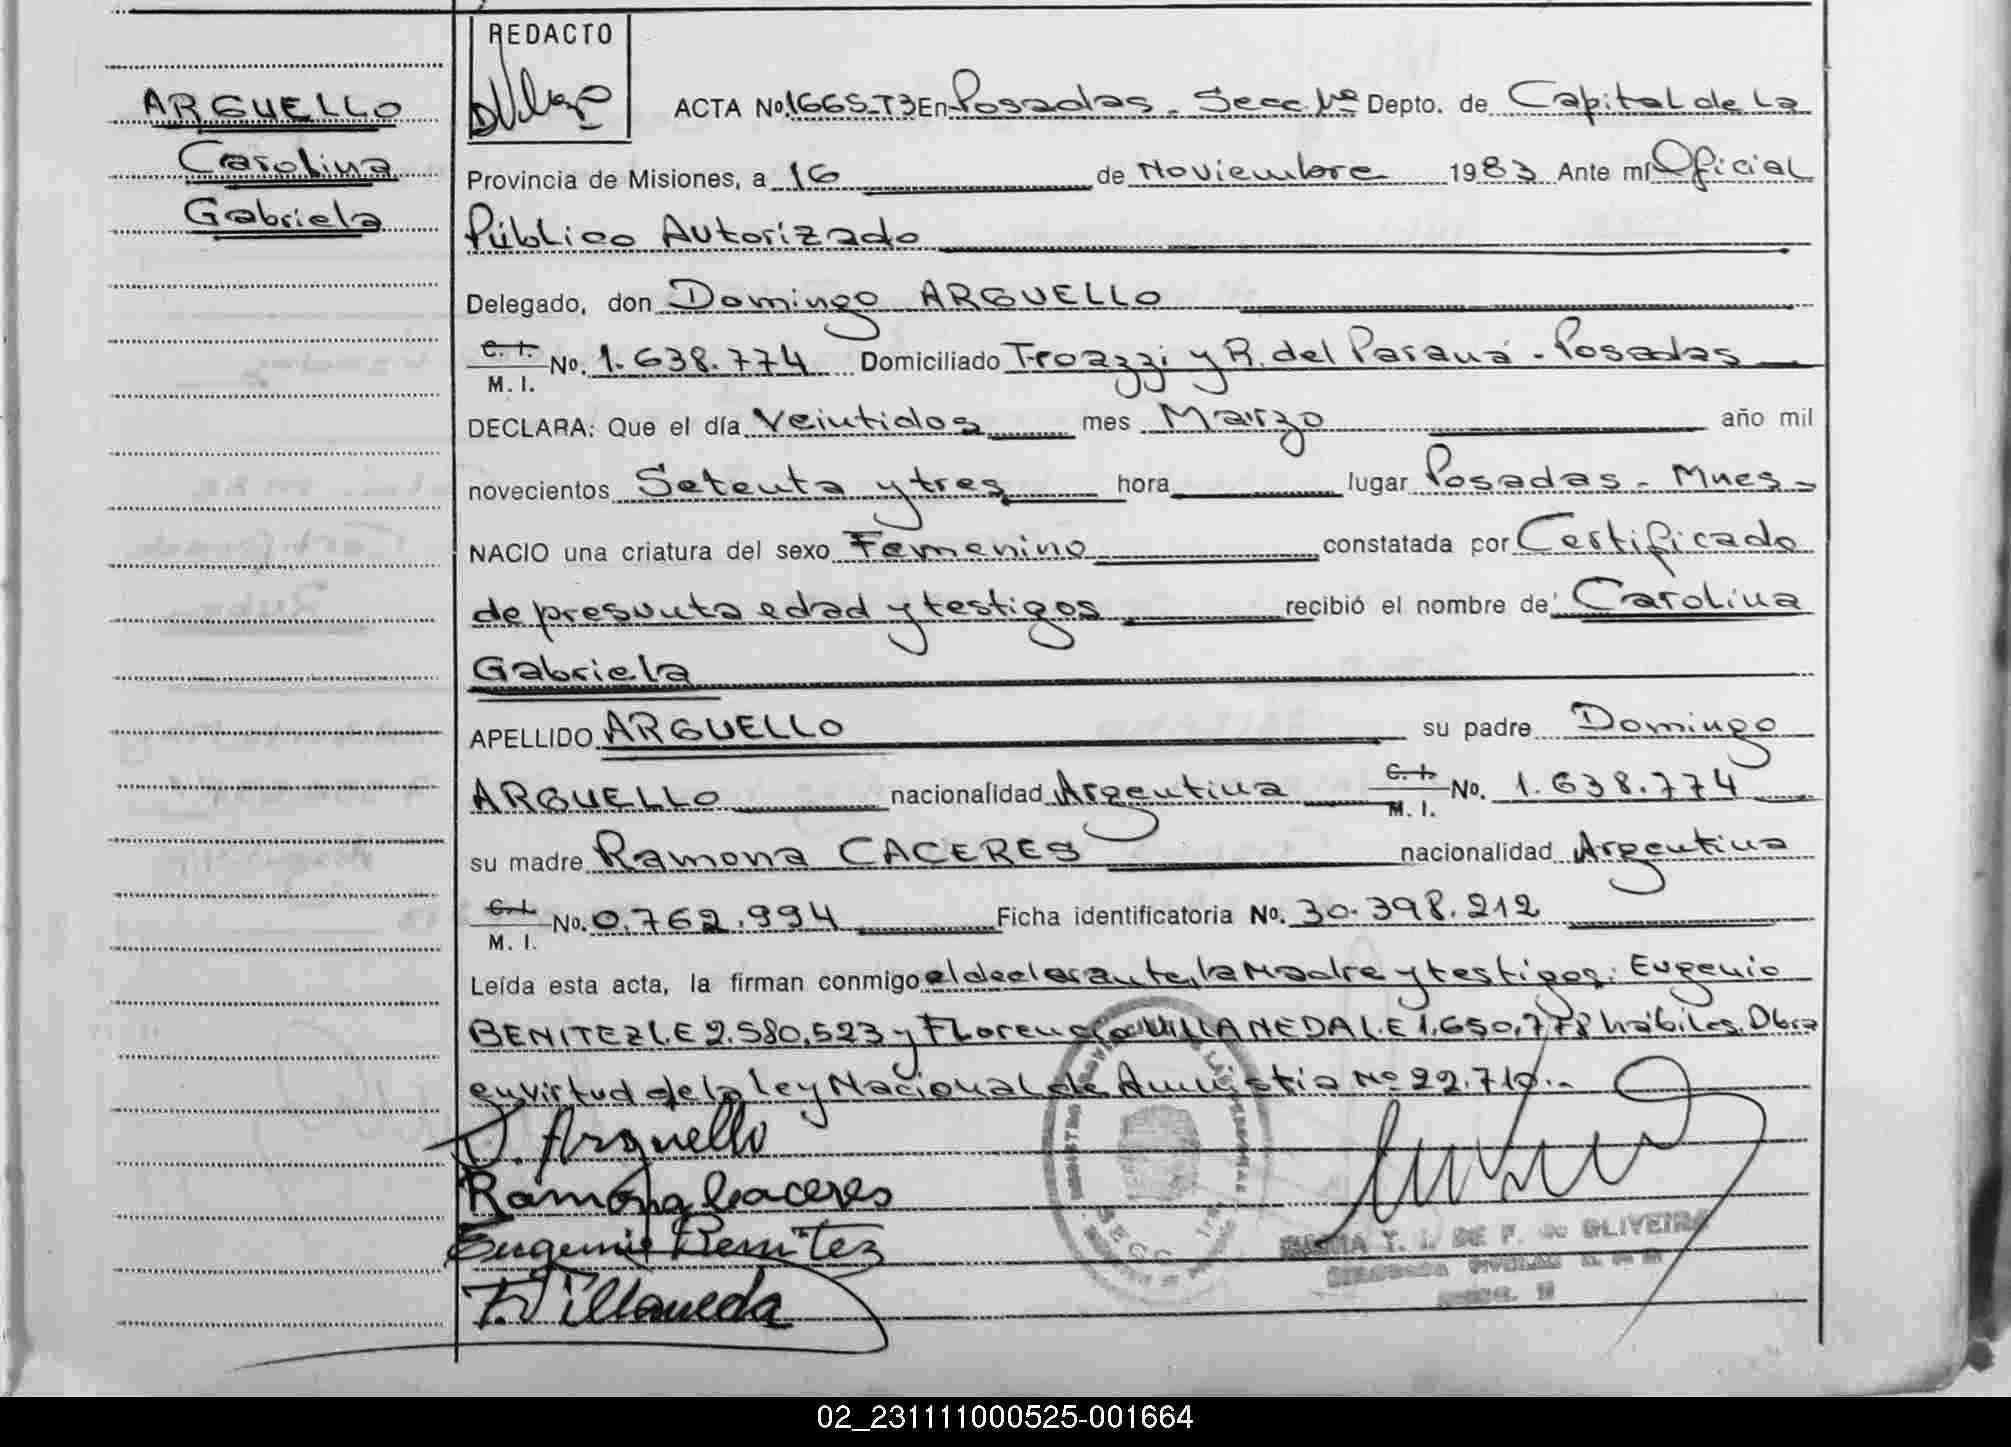 REDACTO
ARGUELLO
Carolina
Gabriela
ACTA No. 1665-T3 En Posadas - Secc. 1ª Depto. de Capital de la
Provincia de Misiones, a 16 de Noviembre 1983 Ante mí Oficial
Público Autorizado
Delegado, don Domingo ARGUELLO
C. I. M. I. No. 1.638.774 Domiciliado Troazzi y R. del Paraná - Posadas
DECLARA: Que el día Veintidos mes Marzo año mil
novecientos Setenta y tres hora lugar Posadas - Mnes -
NACIO una criatura del sexo Femenino constatada por Certificado
de presunta edad y testigos recibió el nombre de Carolina
Gabriela
APELLIDO ARGUELLO su padre Domingo
ARGUELLO nacionalidad Argentina C. I. M. I. No. 1.638.774
su madre Ramona CACERES nacionalidad Argentina
C. I. M. I. No. 0.762.994 Ficha identificatoria No. 30.398.212
Leída esta acta, la firman conmigo el declarante, la Madre y testigos: Eugenio
BENITEZ L.E 2.580.523 y Florencio VILLANEDA L.E 1.650.778 hábiles. Obra
en virtud de la ley Nacional de Amnistia Nº 22.710.-
D. Arguello
Ramona Caceres
Eugenio Benitez
F. Villaneda
T. I. DE F. de OLIVEIRA
SECC. 1ª
02_231111000525-001664